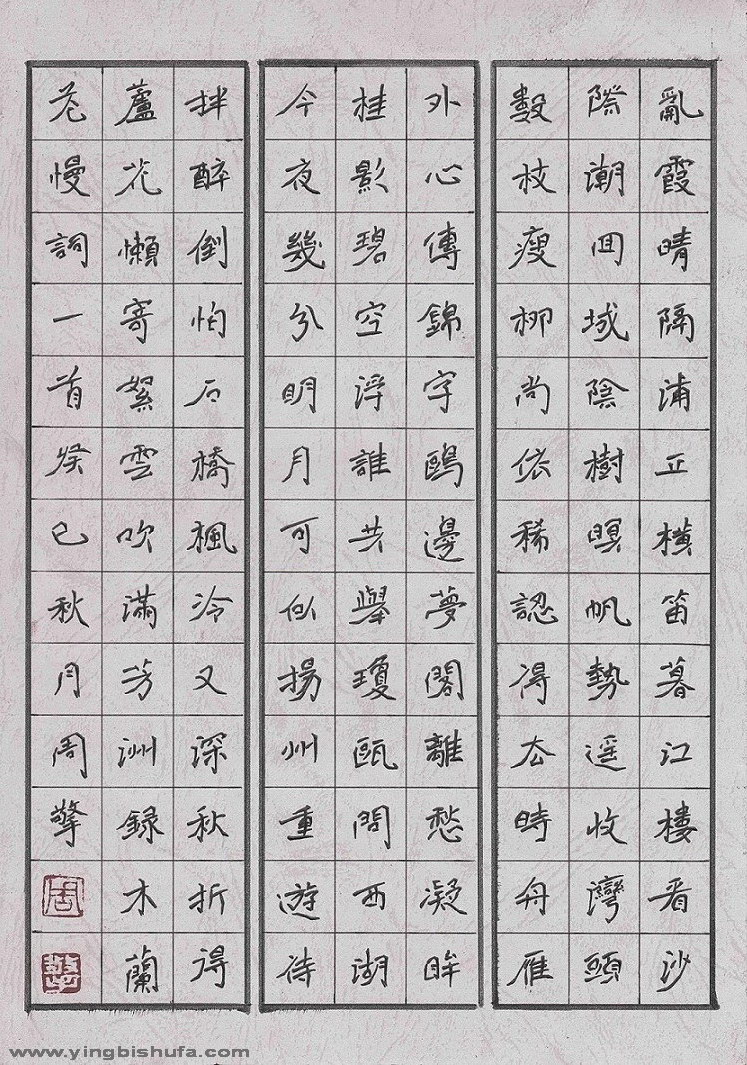 亂霞晴隔浦正橫笛暮江樓看沙
際潮回城陰樹暝帆勢遥收灣頭
數枝瘦柳尚依稀認得去時舟雁
外心傳錦字鷗邊夢閣離愁凝眸
桂影碧空浮誰共舉瓊甌問西湖
今夜幾分明月可似揚州重遊待
拌醉倒怕石橋楓冷又深秋折得
蘆花懶寄絮雲吹滿芳洲録木蘭
花慢詞一首癸巳秋月周擎
周
擎
www.yingbishufa.com